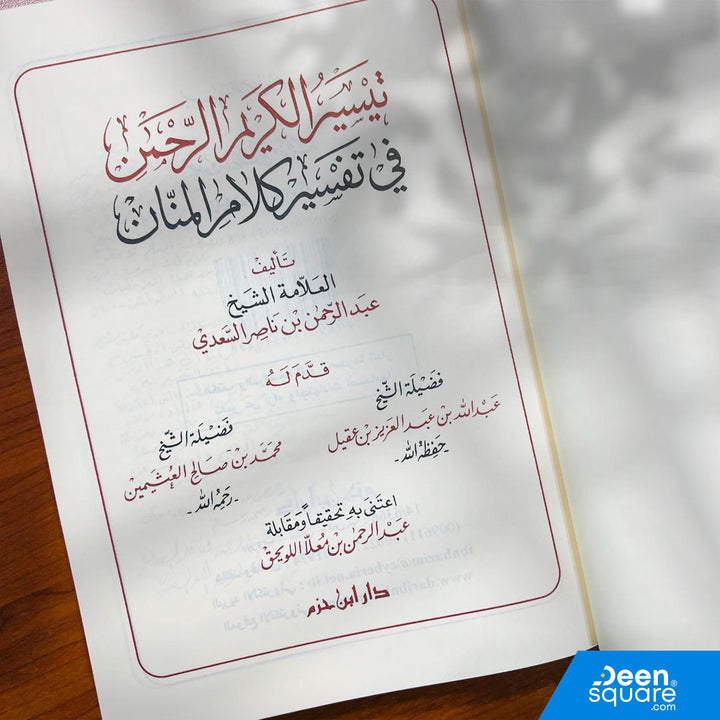 تيسير الكريم الرحمن
في تفسير كلام المنّان
تأليف
العلامة الشيخ
عبد الرحمن بن ناصر السعدي
قدّم له
فضيلة الشيخ
عبد الله بن عبد العزيز بن عقيل
- حفظه الله -
فضيلة الشيخ
محمد بن صالح العثيمين
- رحمه الله -
اعتنى به تحقيقاً ومقابلة
عبد الرحمن بن معلّا اللويحق
دار ابن حزم
Deen
square®
.com